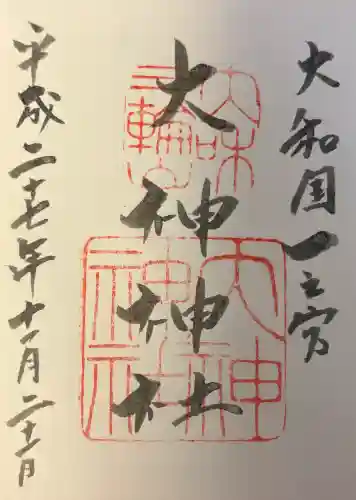 大和国一之宮
大神神社
平成二十七年十一月二十一日
大和
三輪山
大神
神社